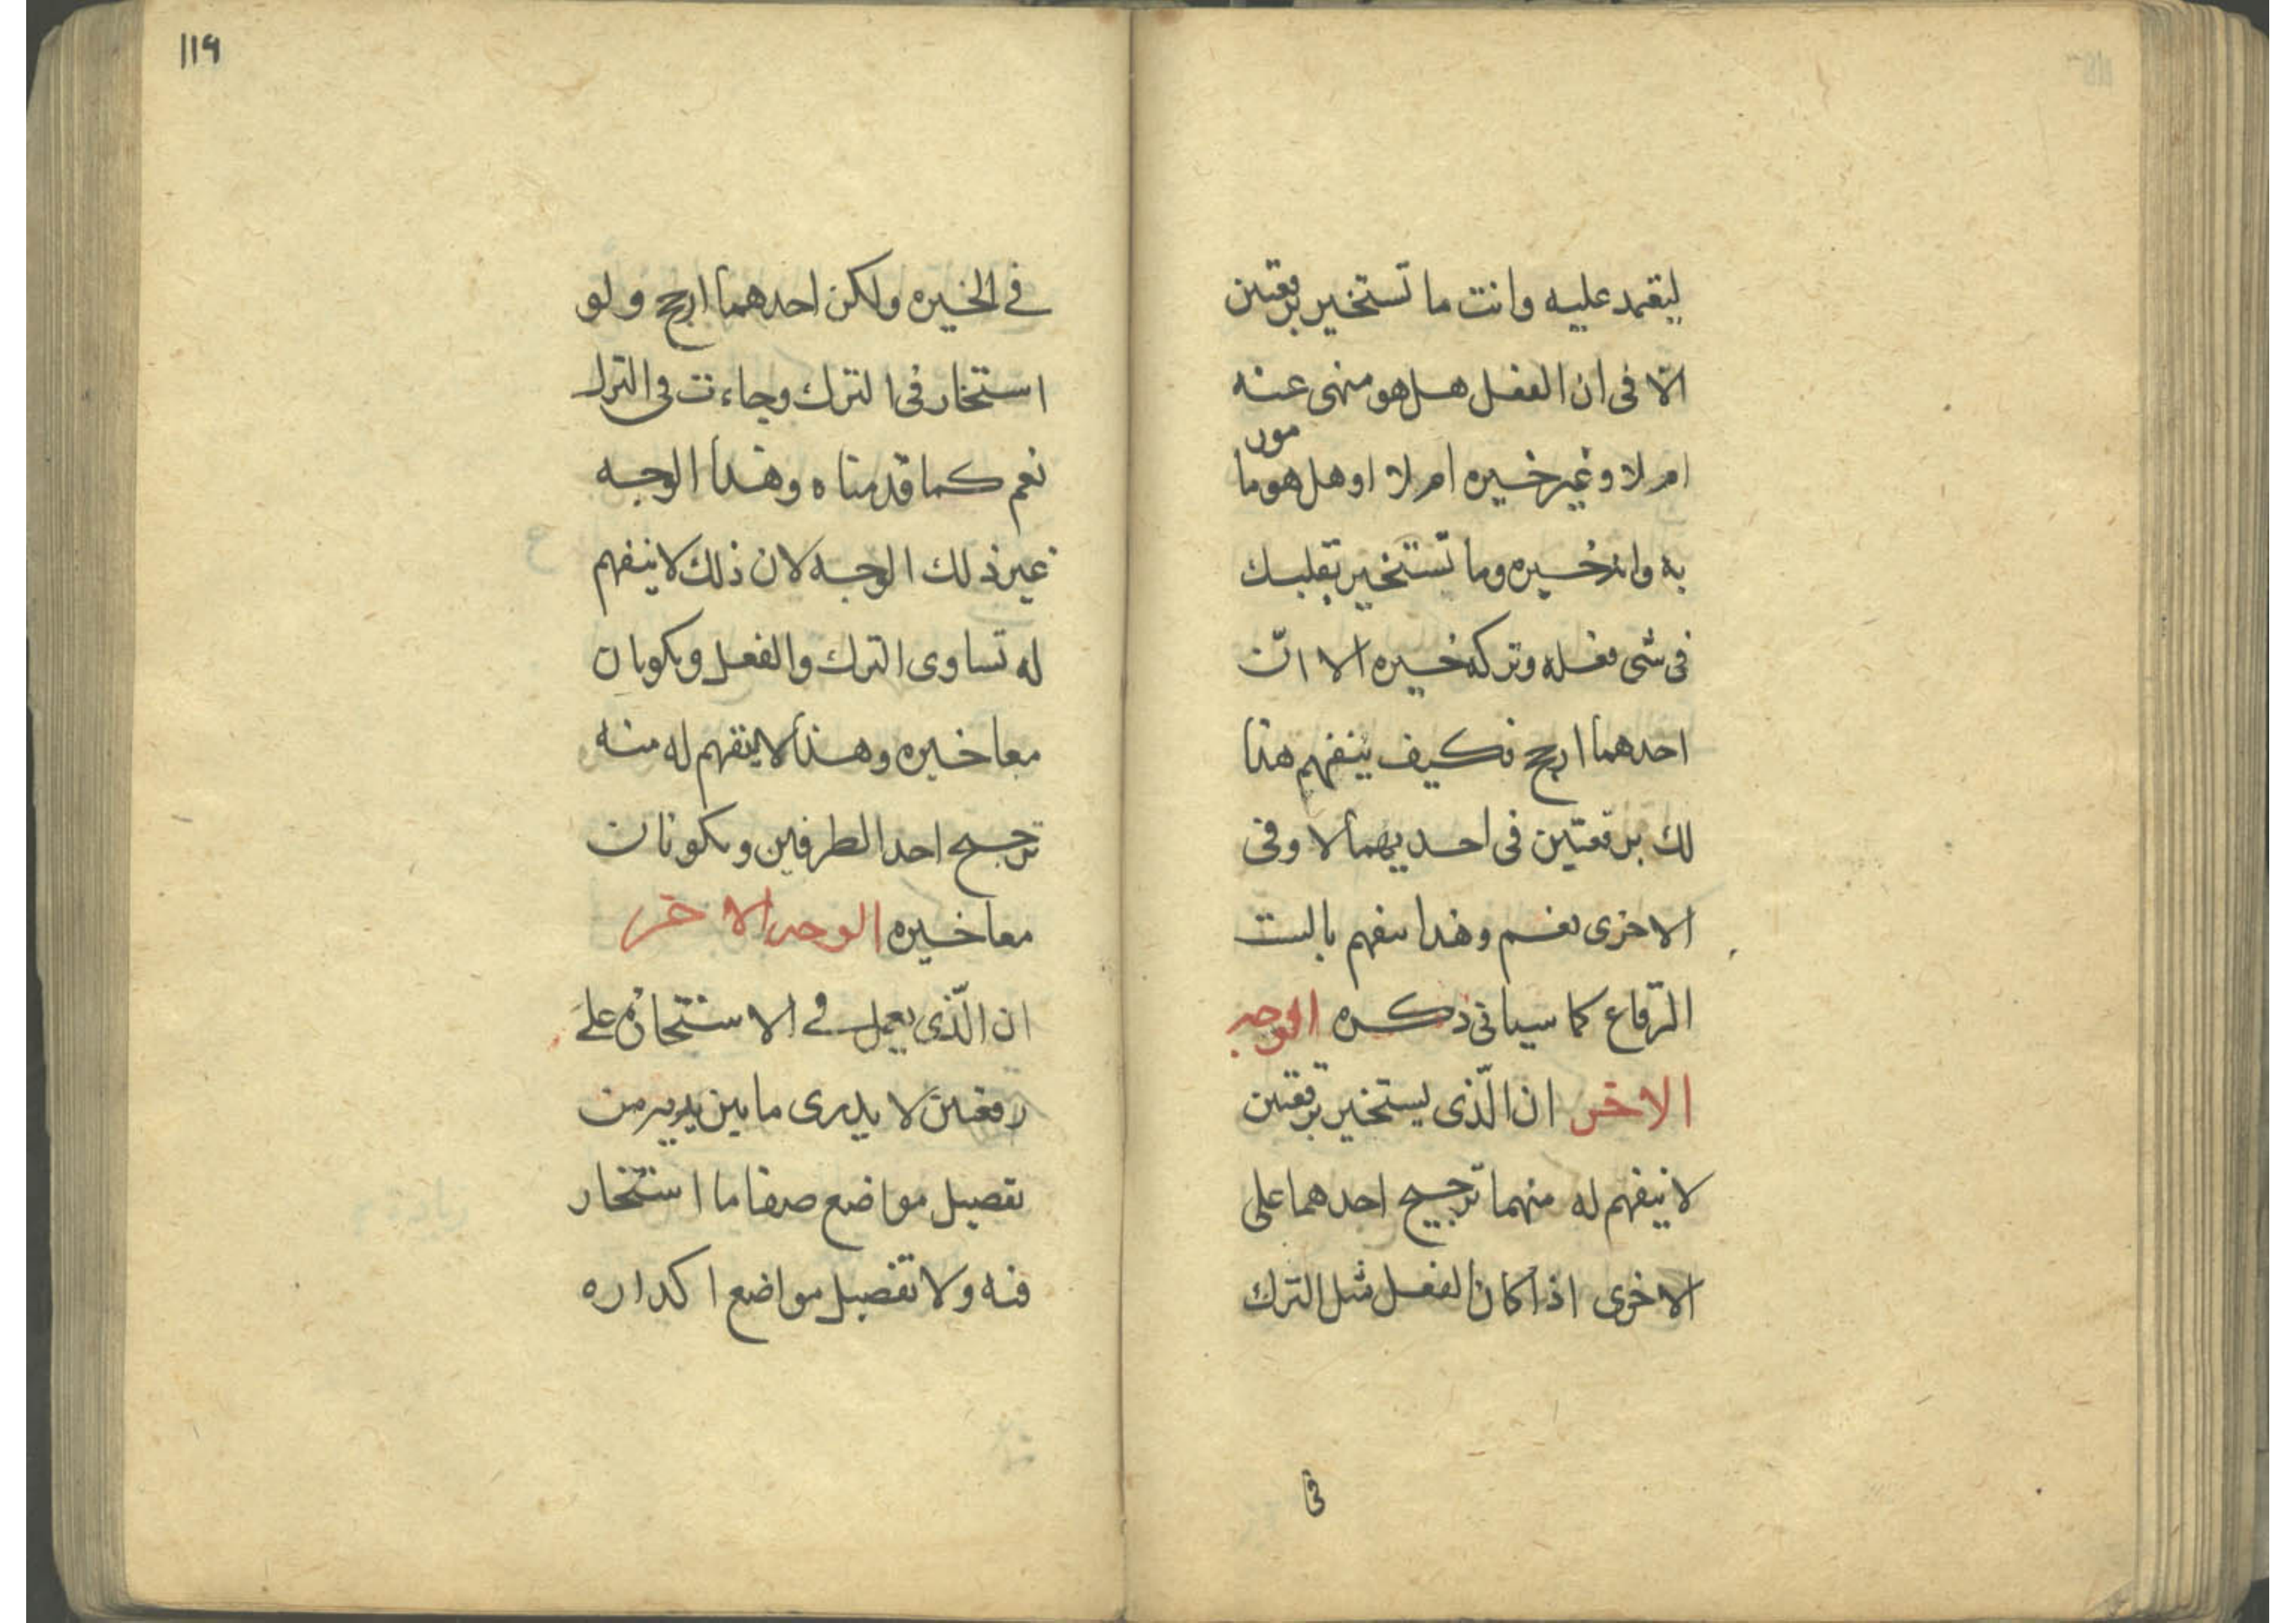 ليقمد عليه وانت ما تستخير برقعتين
الا فى ان الفعل هل هو منهى عنه
ام لا وغير خيره ام لا او هل هو مامور
به وانه خيره وما تستخير بقلبك
فى شى فعله وتركه خيره الا انّ
احدهما ارجح فكيف ينفهم هذا
لك برقعتين فى احديهما لا وفى
الاخرى نعم وهذا ينفهم بالست
الرّقاع كما سياتى ذكره الوجه
الاخر ان الّذى يستخير برقعتين
لا ينفهم له منهما ترجيح احدهما على
الاخرى اذا كان الفعل مثل الترك
فى
119
في الخيره ولكن احدهما ارجح ولو
استخار فى الترك وجاءت فى الترك
نعم كما قدمناه وهذا الوجه
غير ذلك الوجه لان ذلك لا ينفهم
له تساوى الترك والفعل ويكونان
معا خيره وهذا لا ينفهم له منه
ترجيح احد الطرفين ويكونان
معا خيره الوجه الاخر
ان الّذى يعمل في الاستخارة على
رقعتين لا يدرى ما بين يديه من
تفصيل مواضع صفا ما استخار
فيه ولا تفصيل مواضع اكداره